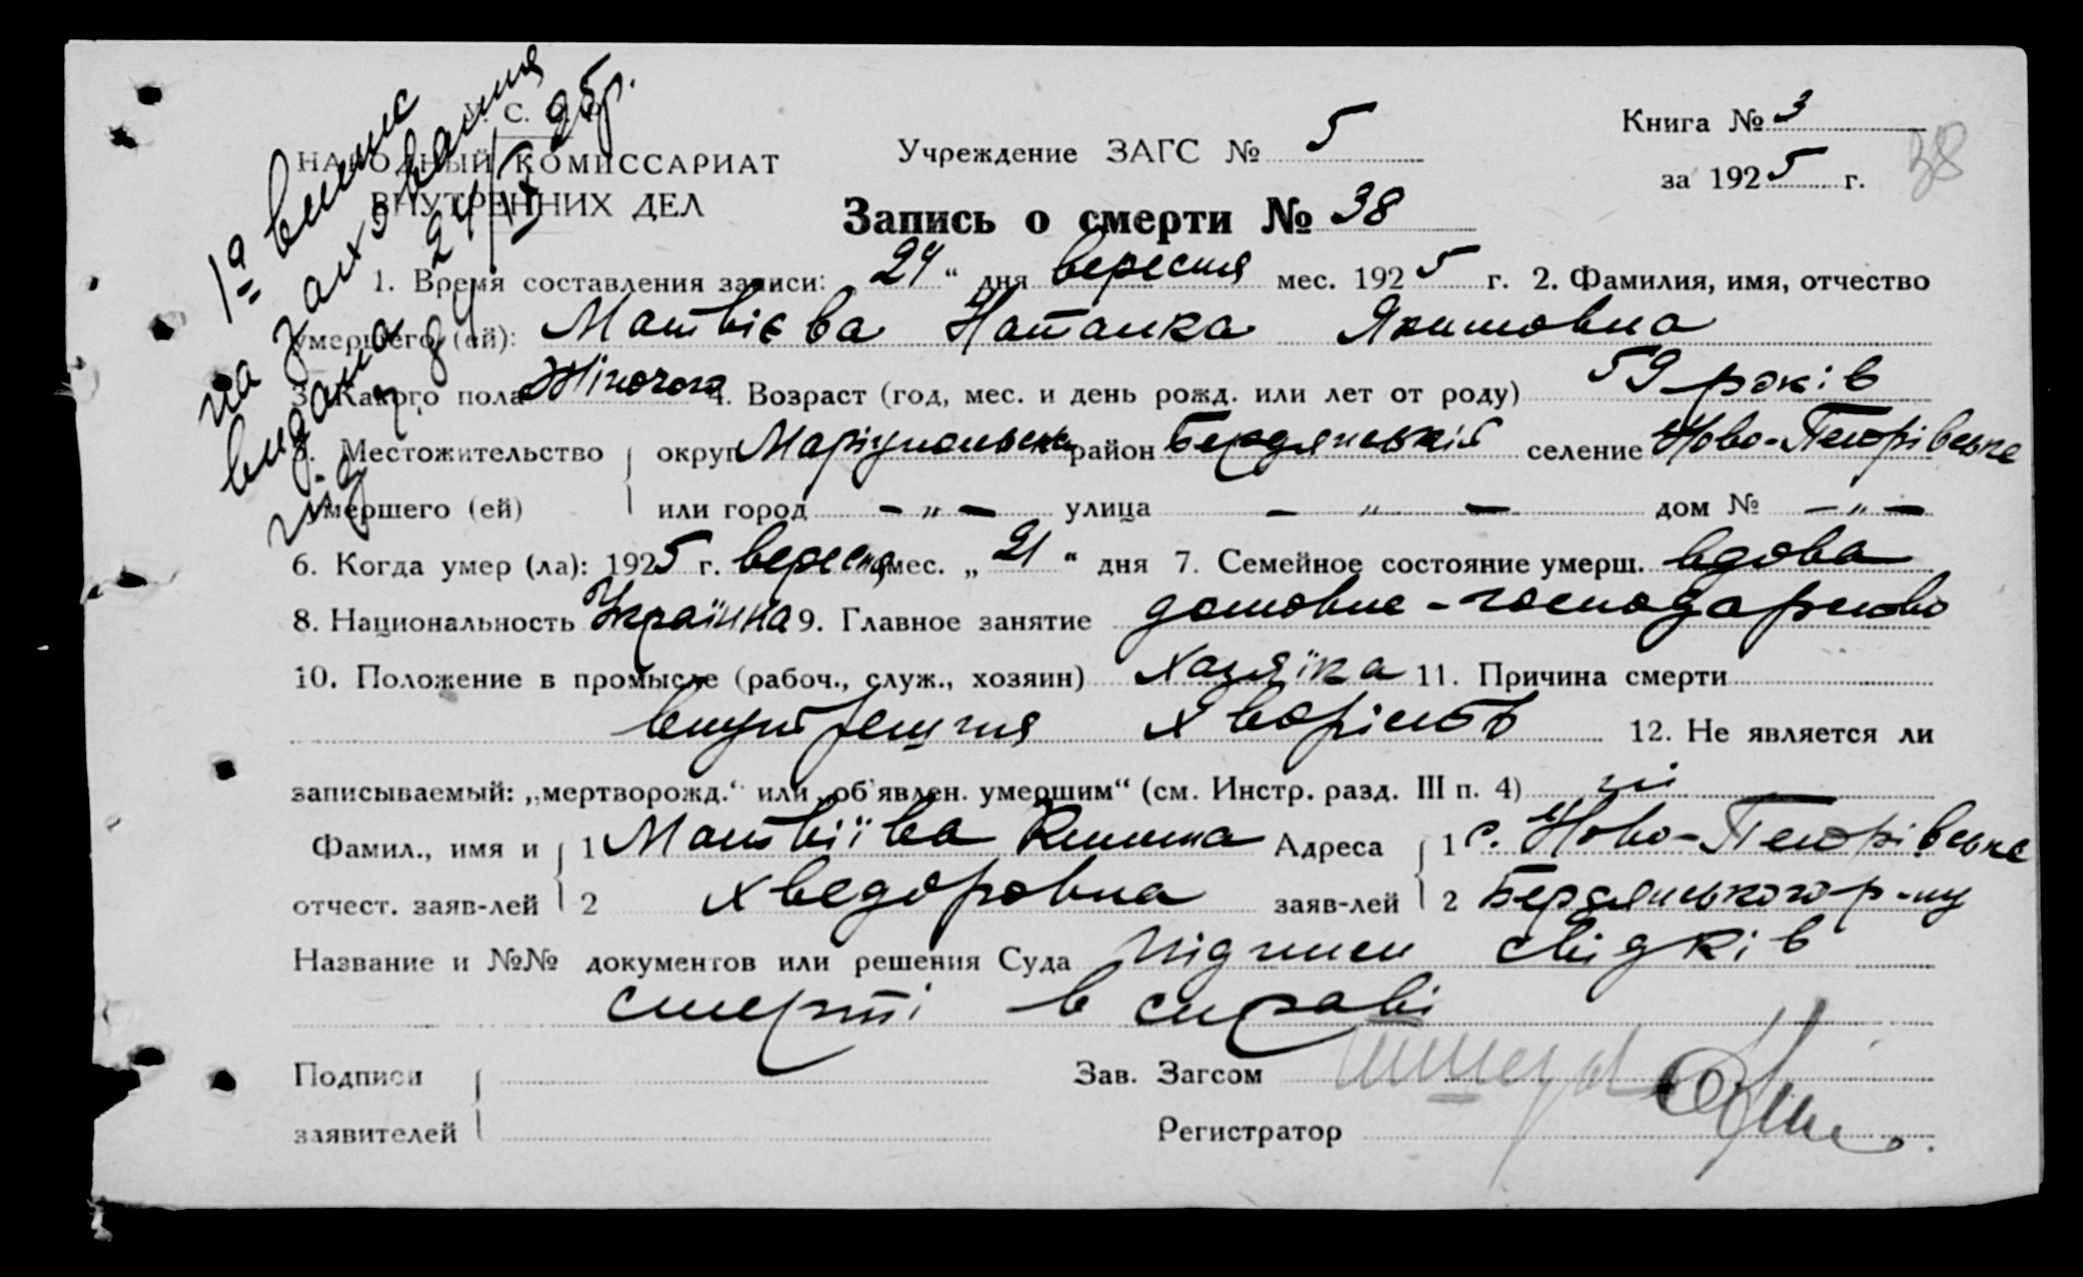 С.
НАРОДНЫЙ КОМИССАРИАТ
ВНУТРЕННИХ ДЕЛ
1а випис
на захоовання
видана 24/IX 25р.
за №
Учреждение ЗАГС № 5
Книга № 3
за 1925 г.
38
Запись о смерти № 38
1. Время составления записи: 24 " дня вересня мес. 1925 г. 2. Фамилия, имя, отчество
умершего (ей): Матвієва Наталка Якимовна
3. Какого пола Жіночого 4. Возраст (год, мес. и день рожд. или лет от роду) 59 років
5. Местожительство округ Маріупольськ район Бердянський селение Ново-Петрівське
умершего (ей) или город — " — улица — " — дом № — " —
6. Когда умер (ла): 1925 г. вересня мес. „ 21 " дня 7. Семейное состояние умерш. вдова
8. Национальность Українка 9. Главное занятие домовне-господарство
10. Положение в промысле (рабоч., служ., хозяин) хазяїка 11. Причина смерти
внутрешня хворість 12. Не является ли
записываемый: „мертворожд.“ или „об'явлен. умершим“ (см. Инстр. разд. III п. 4) ні
Фамил., имя и 1 Матвіїва Адреса 1 с. Ново-Петрівське
отчест. заяв-лей 2 Хведоровна заяв-лей 2 Бердянського р-ну
Название и №№ документов или решения Суда Підписи свідків
смерті в справі
Подписи Зав. Загсом
заявителей Регистратор